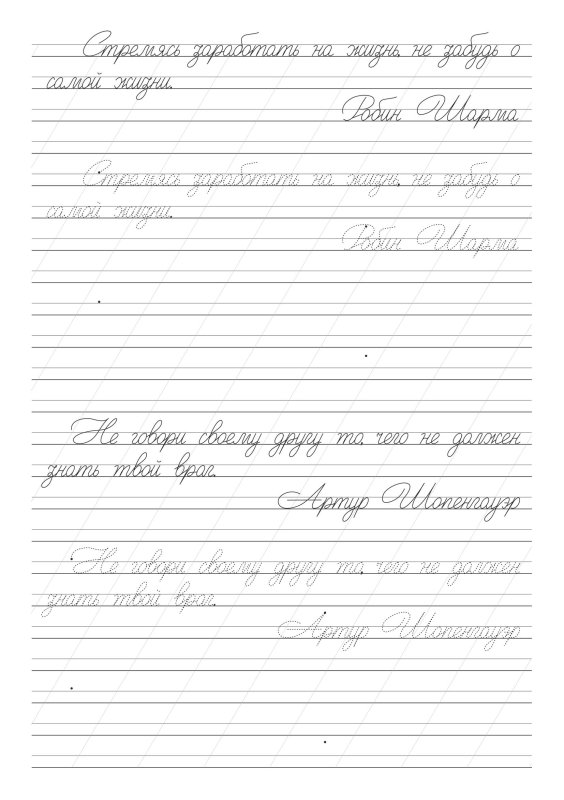 Стремясь заработать на жизнь, не забудь о
самой жизни.
Робин Шарма
Стремясь заработать на жизнь, не забудь о
самой жизни.
Робин Шарма
Не говори своему другу то, чего не должен
знать твой враг.
Артур Шопенгауэр
Не говори своему другу то, чего не должен
знать твой враг.
Артур Шопенгауэр